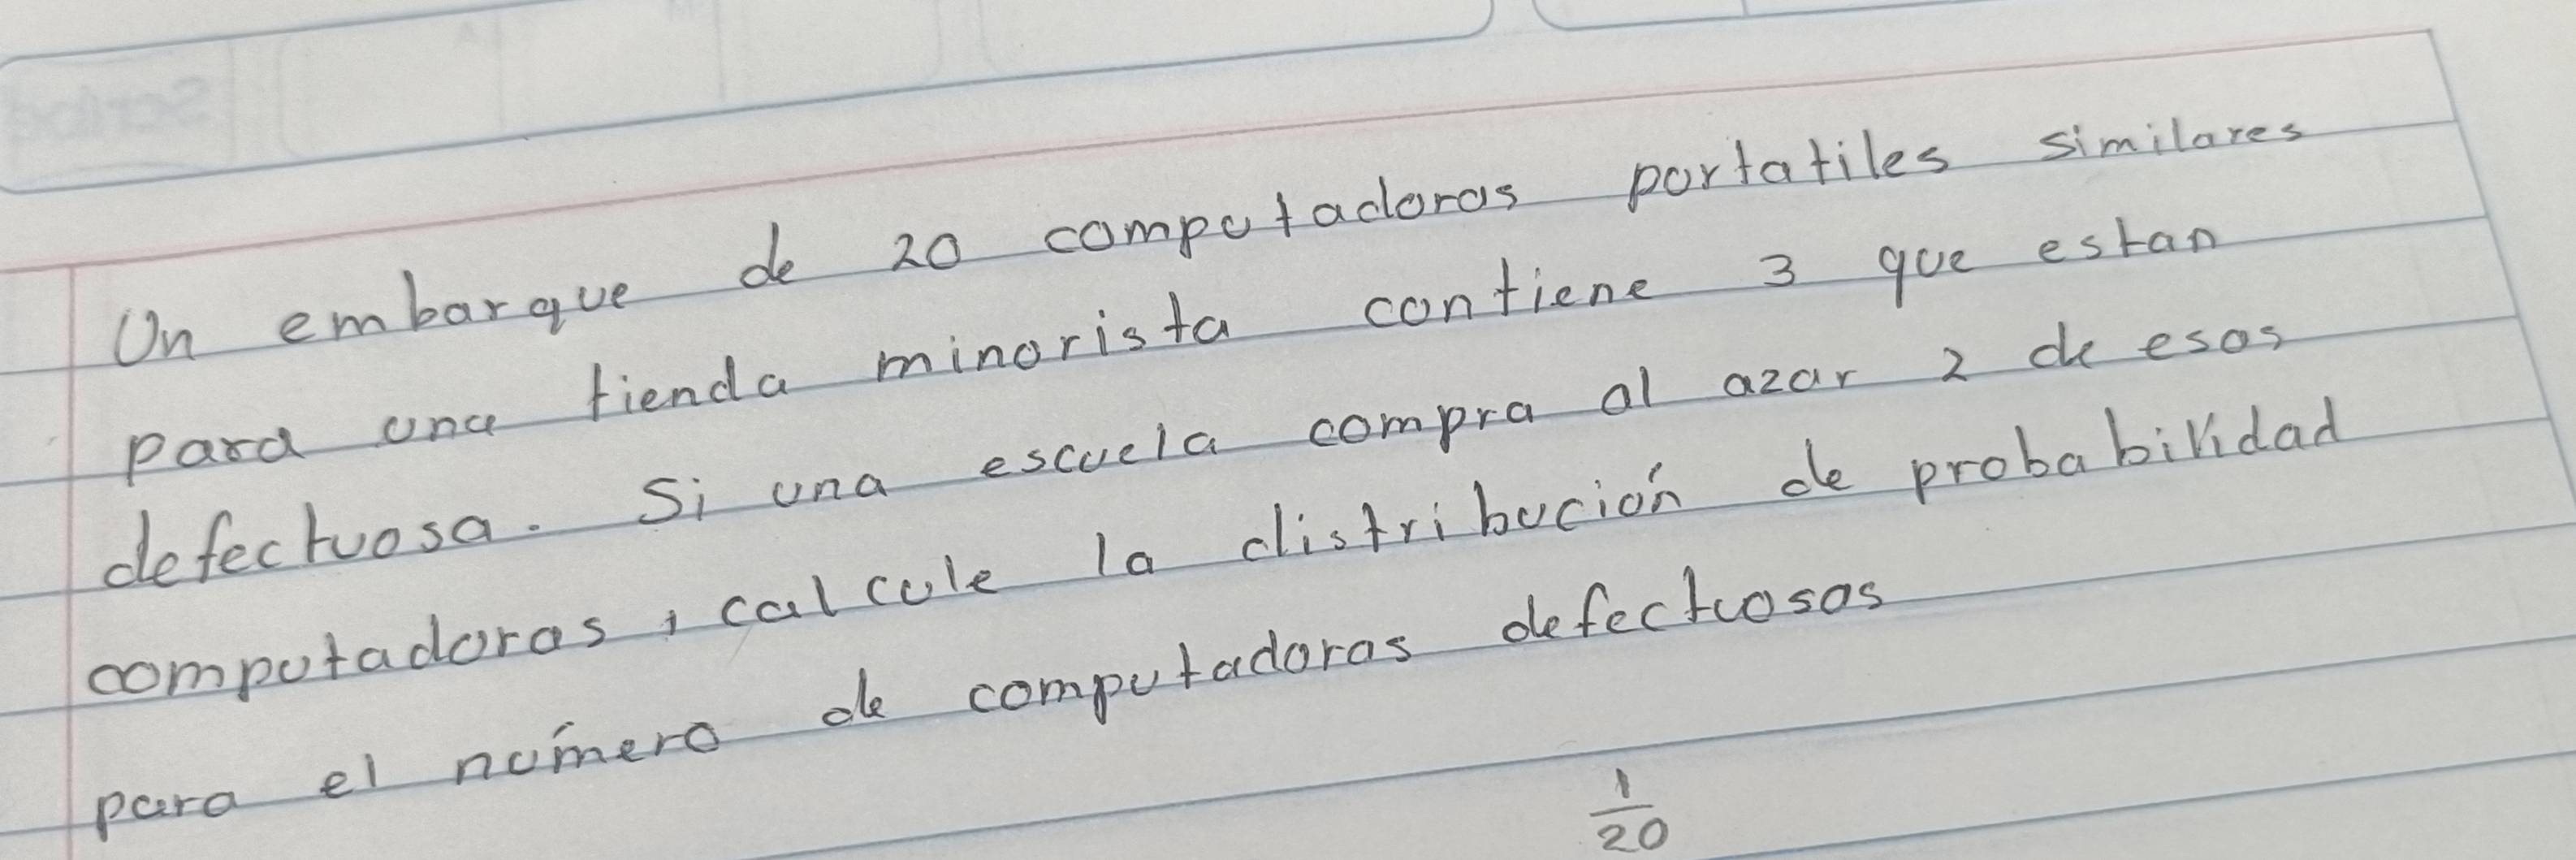 Un embarque de 20 computadoras portatiles similares
para una tienda minorista contiene 3 que estan
defectuosa. Si una escuela compra al azar 2 de esas
computadoras, calcule la distribución de probabilidad
para el número de computadoras defectuosas
1
20